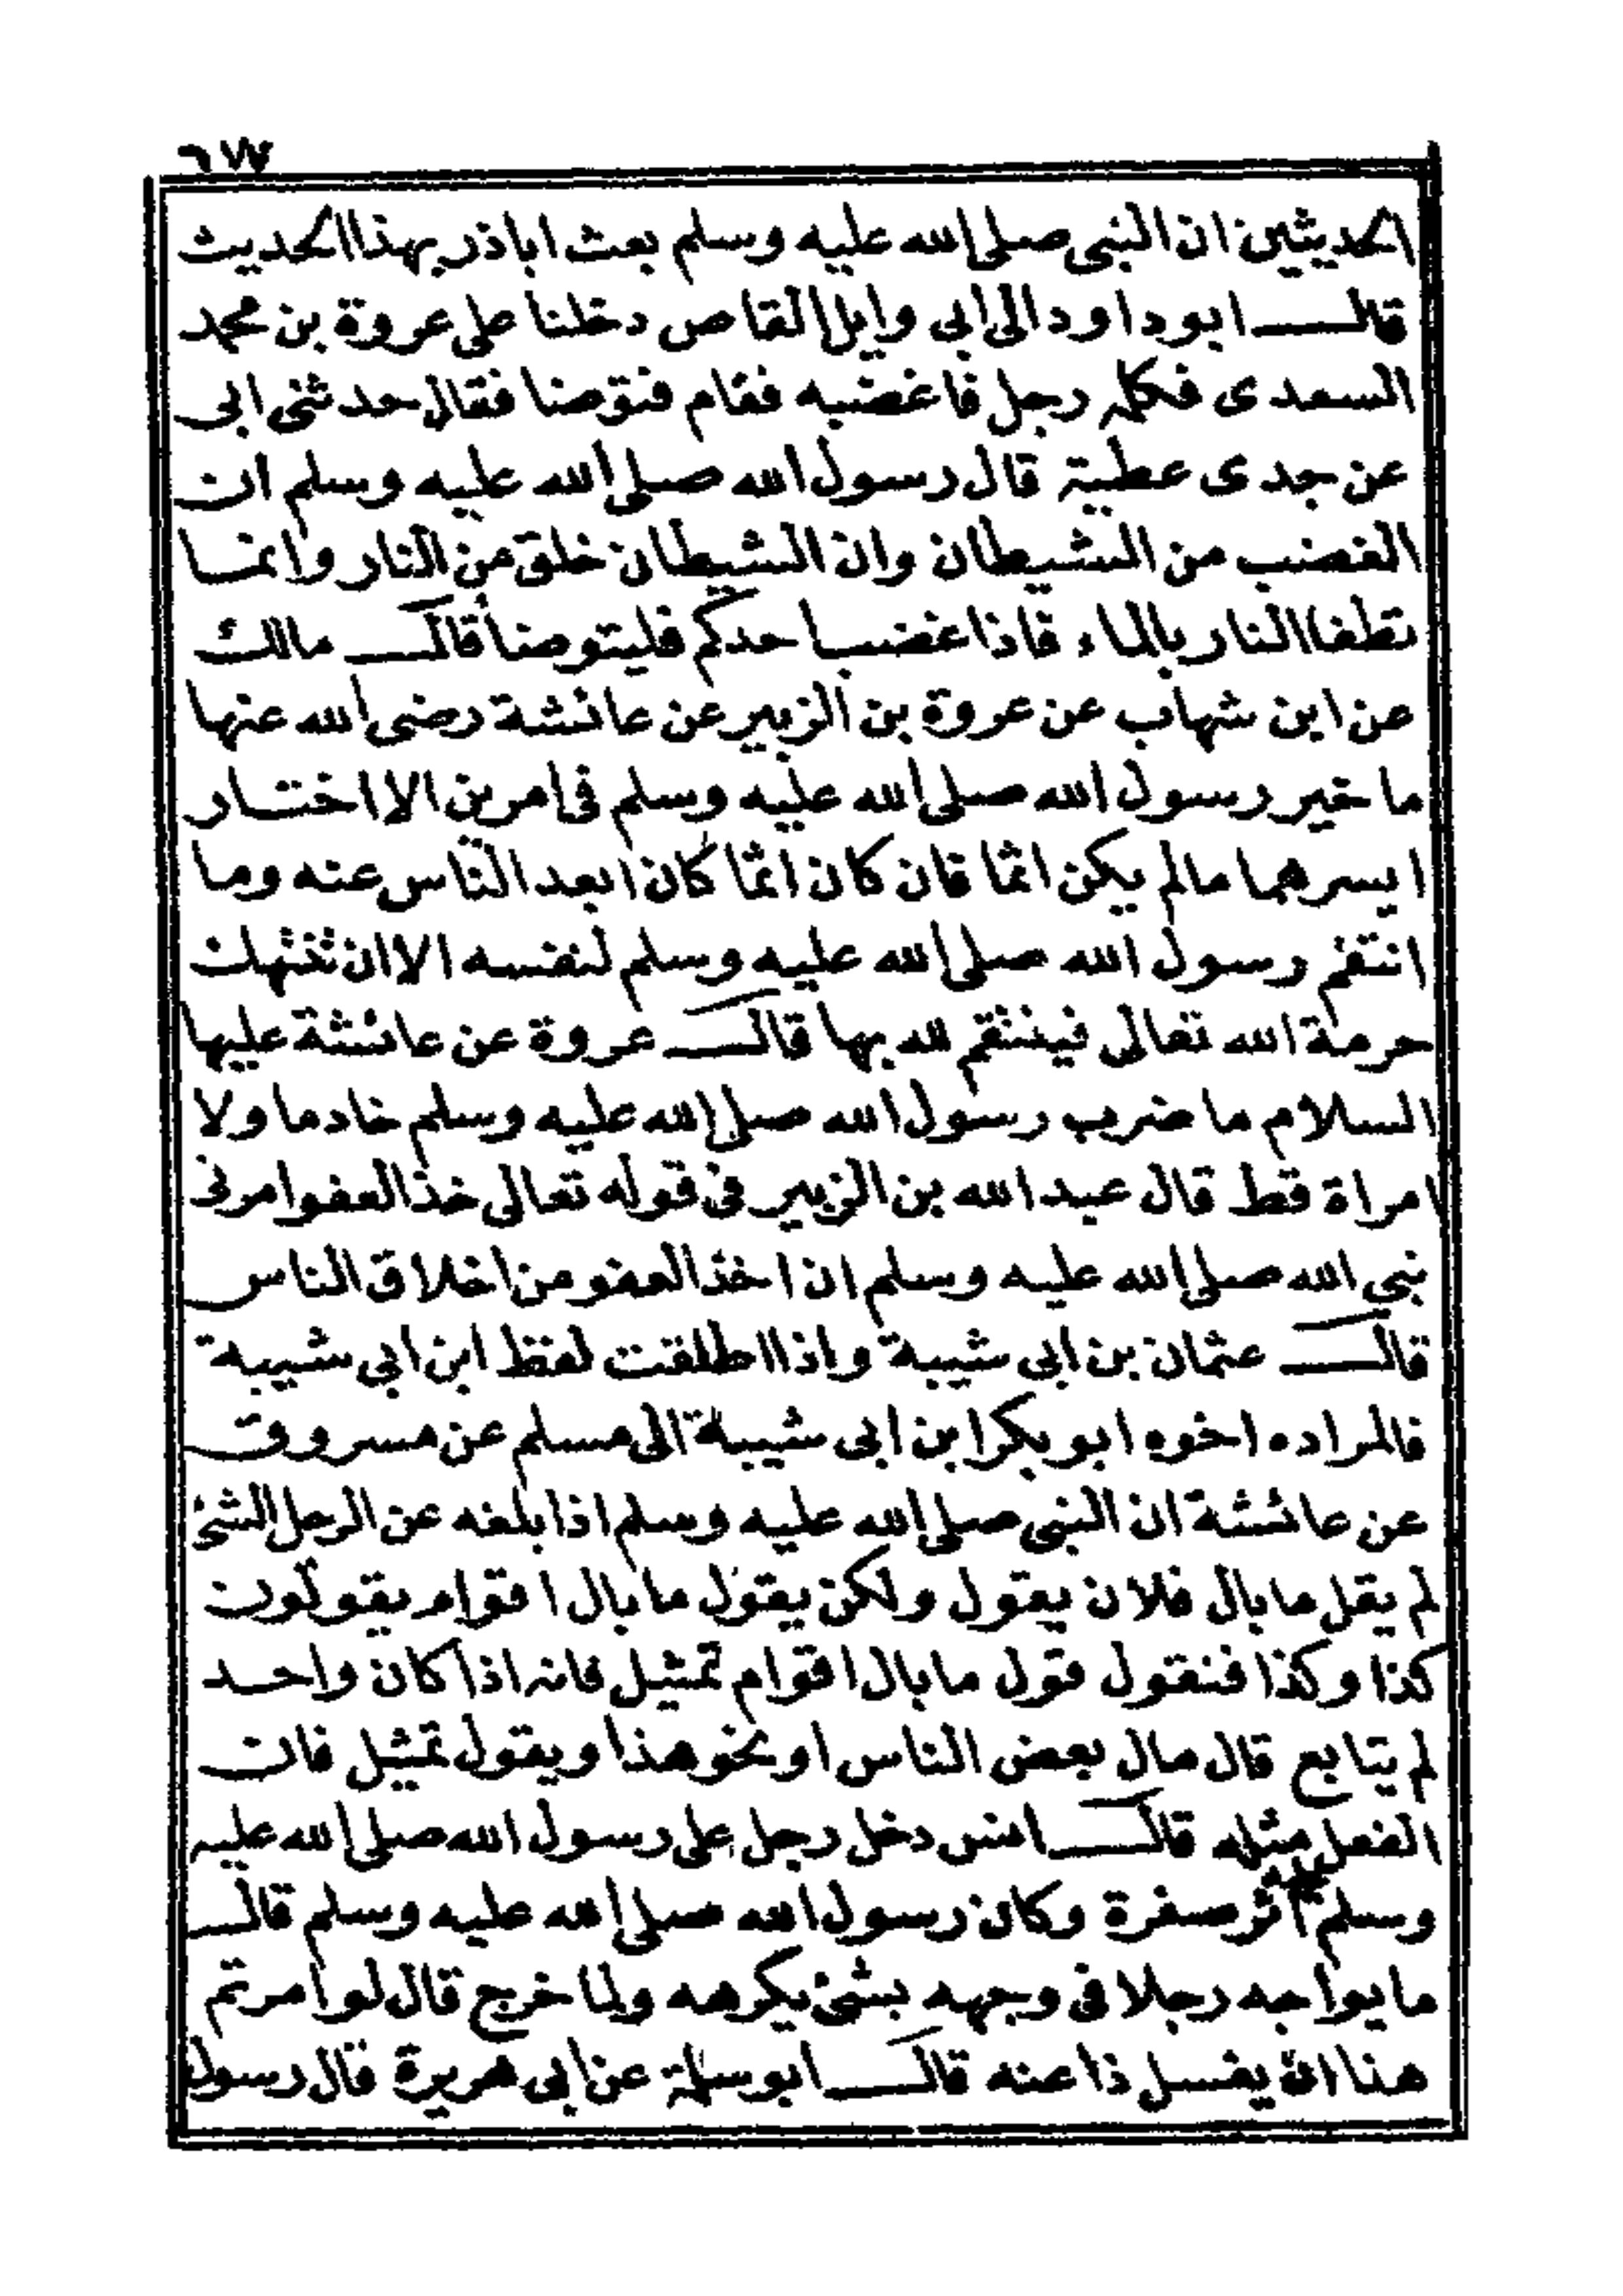 ٦٧٧
الحديثين ان النبى صلى الله عليه وسلم بعث اباذر بهذا الحديث
قال ابوداود الى ابى وايل القاص دخلنا على عروة بن محمد
السعدى فكلمه رجل فاغضبه فقام فتوضا فقال حدثنى ابى
عن جدى عطية قال رسول الله صلى الله عليه وسلم ان
الغضب من الشيطان وان الشيطان خلق من النار وانما
تطفا النار بالماء فاذا غضب احدكم فليتوضأ قال مالك
عن ابن شهاب عن عروة بن الزبير عن عائشة رضى الله عنها
ما خير رسول الله صلى الله عليه وسلم فى امرين الا اختار
ايسرهما مالم يكن اثما فان كان اثما كان ابعد الناس عنه وما
انتقم رسول الله صلى الله عليه وسلم لنفسه الا ان تنتهك
حرمة الله تعالى فينتقم لله بها قال عروة عن عائشة عليها
السلام ما ضرب رسول الله صلى الله عليه وسلم خادما ولا
امراة قط قال عبد الله بن الزبير فى قوله تعالى خذ العفو امر نى
نبى الله صلى الله عليه وسلم ان اخذ العفو من اخلاق الناس
قال عثمان بن ابى شيبة واذا اطلقت لفظ ابن ابى شيبة
فالمراده اخوه ابو بكر ابن ابى شيبة الى مسلم عن مسروق
عن عائشة ان النبى صلى الله عليه وسلم اذا بلغه عن الرجل الشئ
لم يقل ما بال فلان يقول ولكن يقول ما بال اقوام يقولون
كذا وكذا فنقول قول ما بال اقوام تمثيل فانه اذا كان واحد
لم يتابع قال مال بعض الناس او نحو هذا ويقول تمثيل فان
الفعل مثله قال انس دخل رجل على رسول الله صلى الله عليه
وسلم اثر صفرة وكان رسول الله صلى الله عليه وسلم قال
ما يواجه رجلا فى وجهه بشئ يكرهه ولما خرج قال لو امرتم
هذا ان يغسل ذا عنه قال ابوسلمة عن ابى هريرة قال رسول